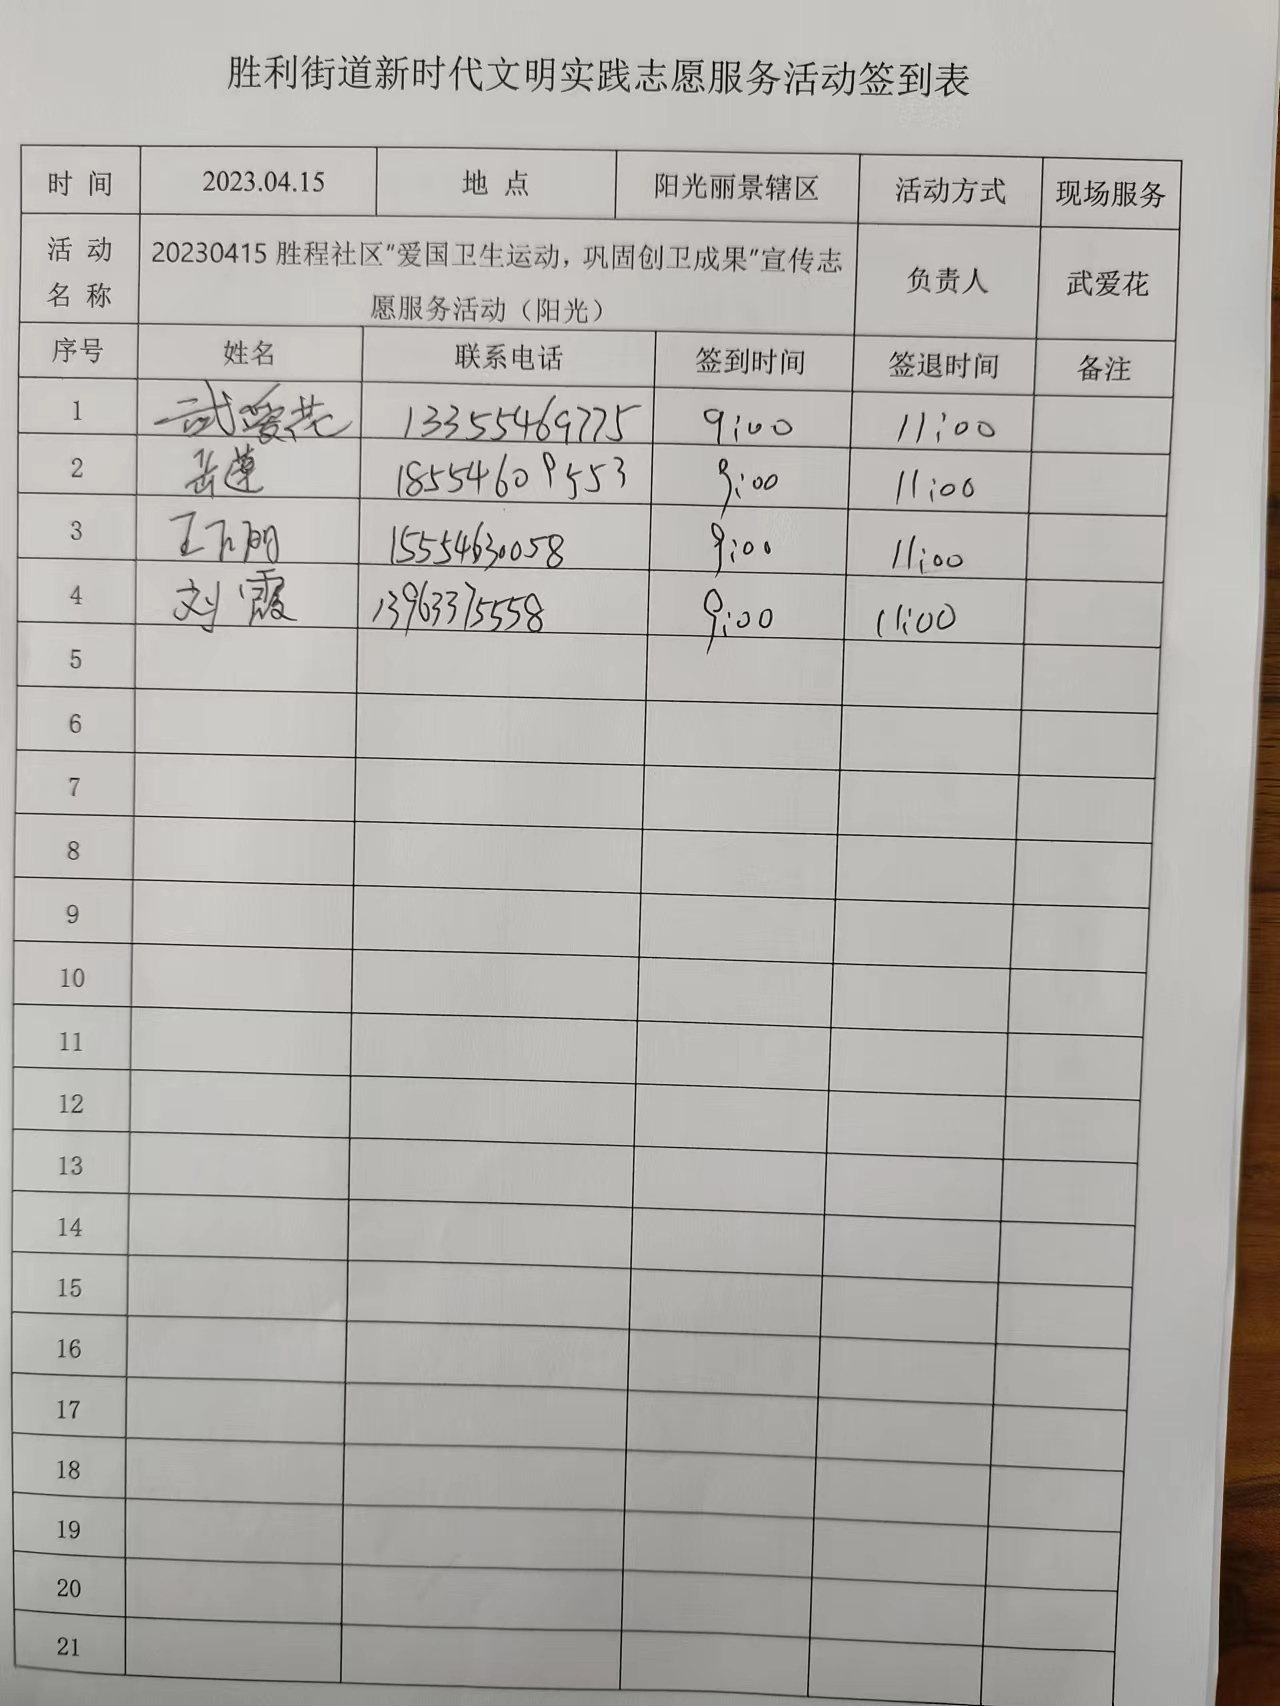 胜利街道新时代文明实践志愿服务活动签到表
时 间 2023.04.15 地 点 阳光丽景辖区 活动方式 现场服务
活 动 名 称 20230415 胜程社区"爱国卫生运动，巩固创卫成果"宣传志 负责人 武爱花
愿服务活动（阳光）
序号 姓名 联系电话 签到时间 签退时间 备注
1 武爱花 13355469775 9:00 11:00
2 岳莲 18554609553 9:00 11:00
3 王 明 15554630058 9:00 11:00
4 刘霞 13963375558 9:00 11:00
5
6
7
8
9
10
11
12
13
14
15
16
17
18
19
20
21